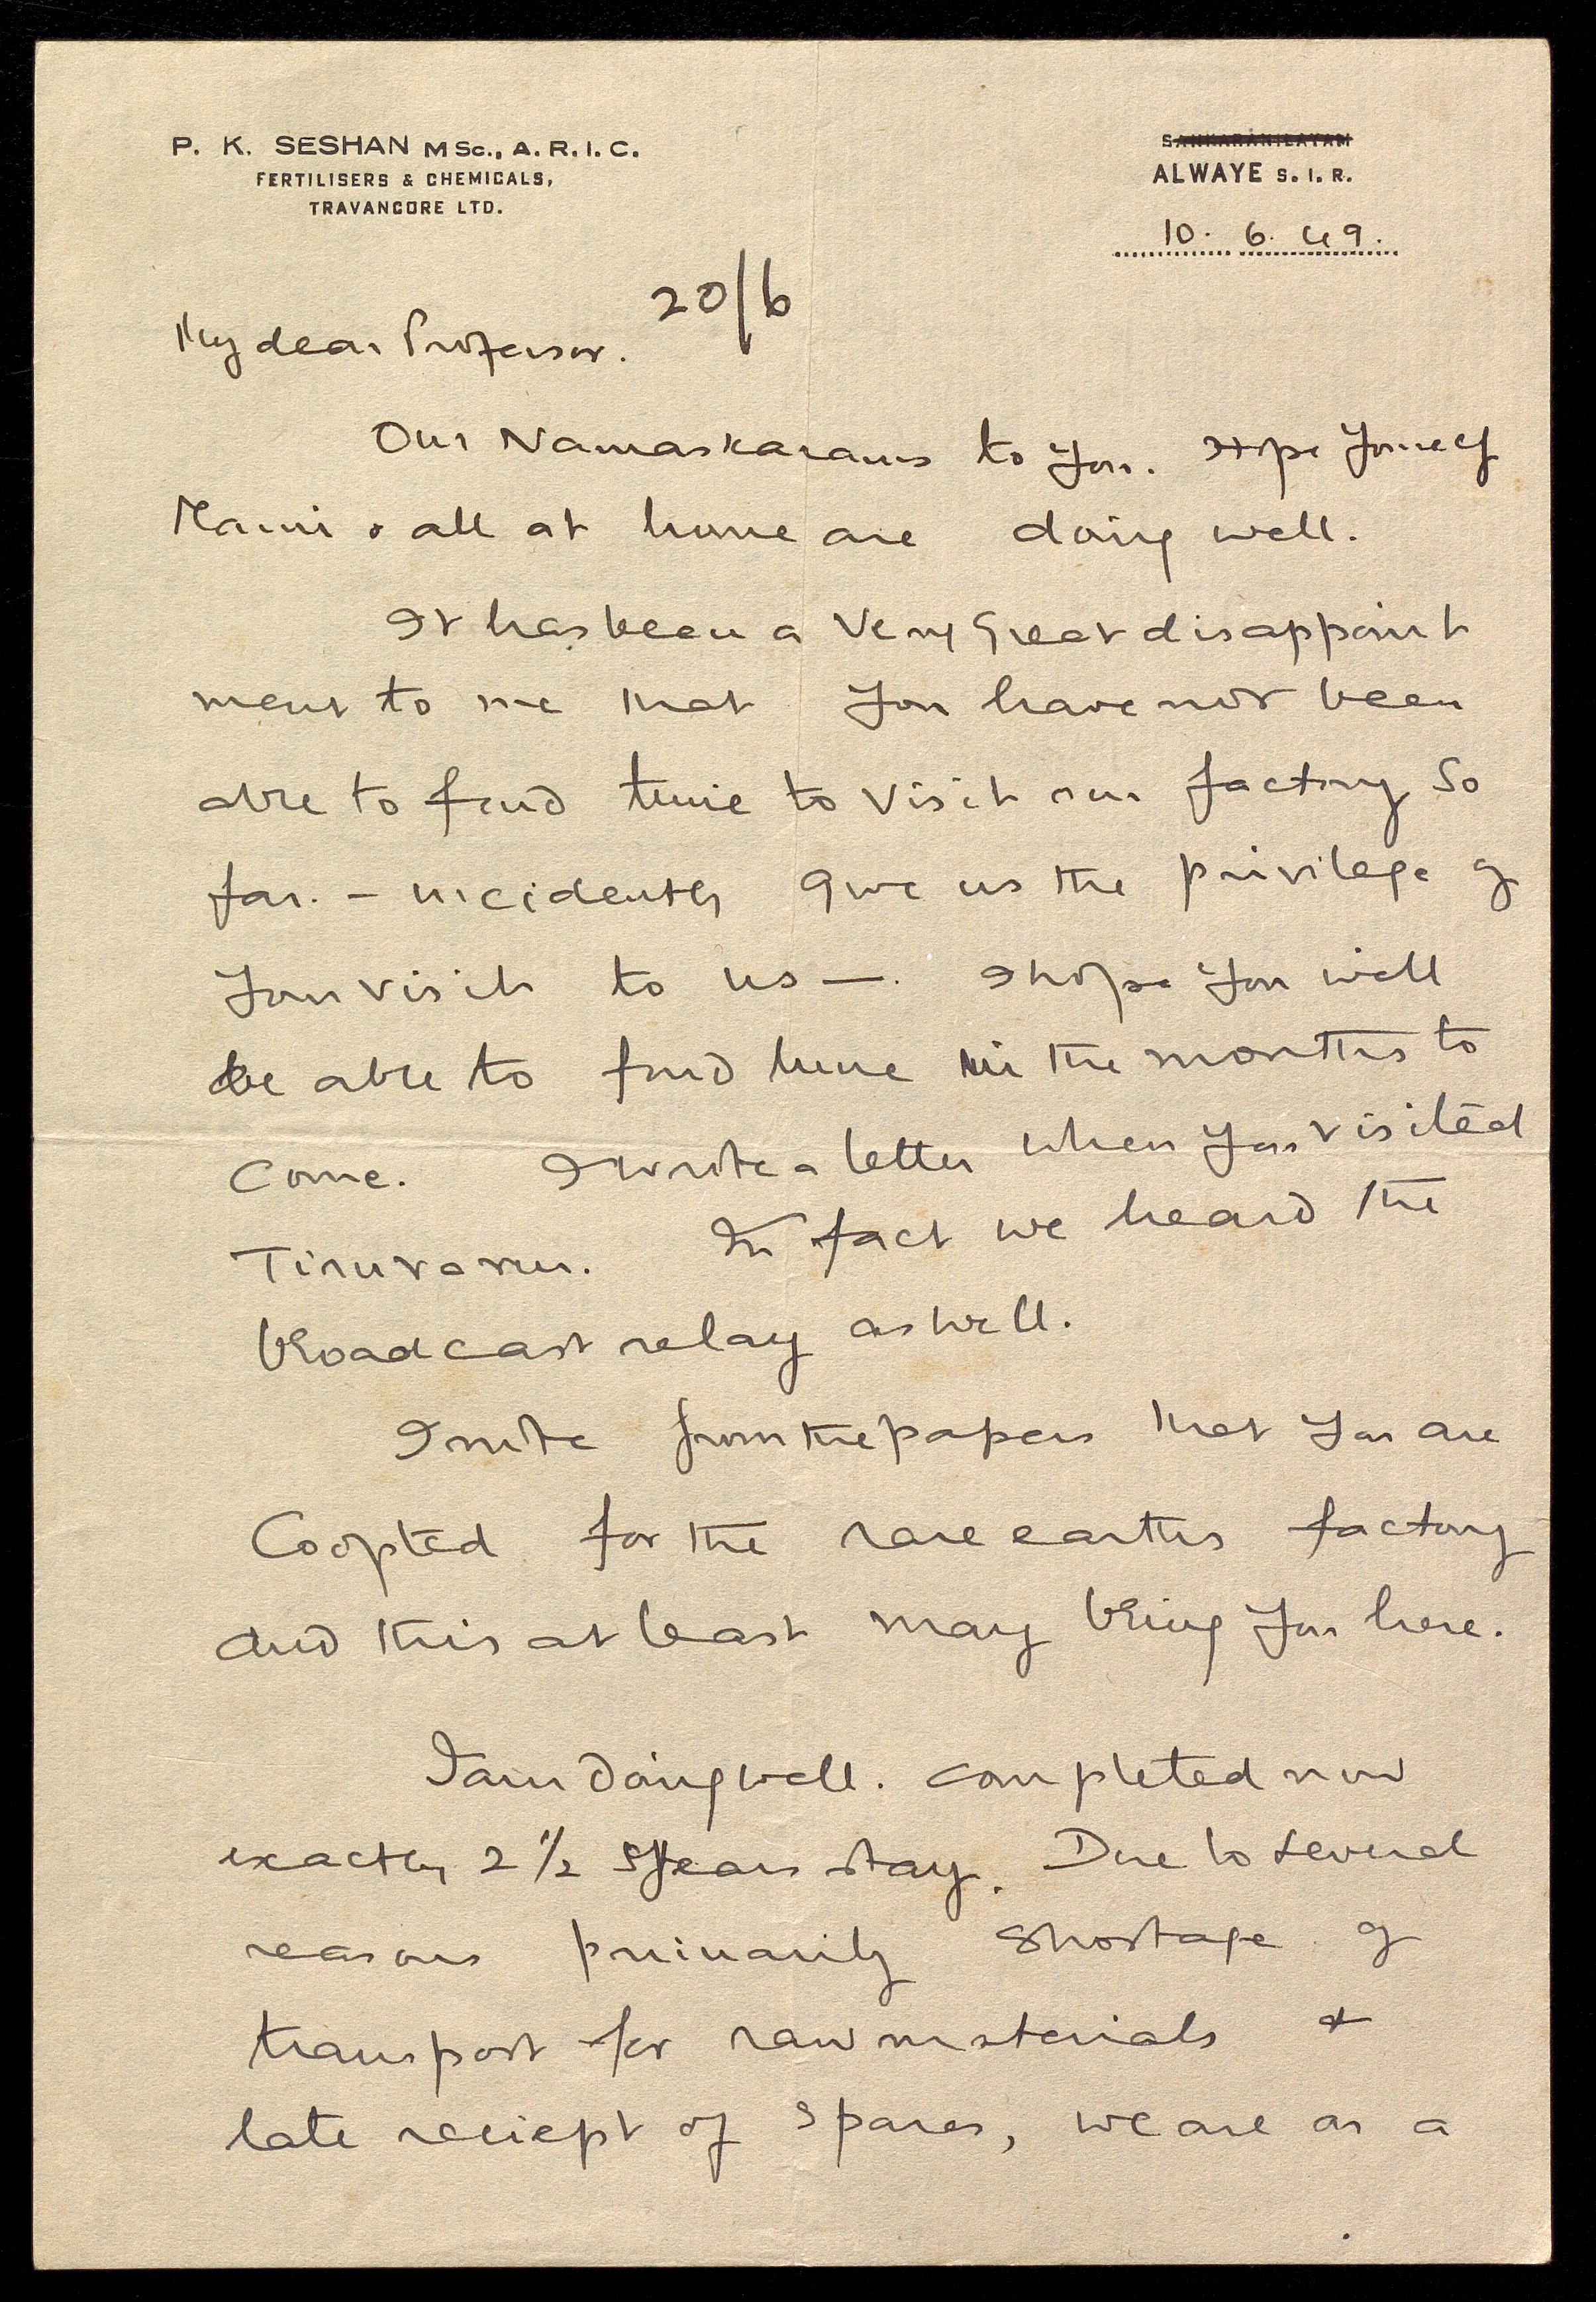 P. K. SESHAN M Sc., A. R. I. C.
FERTILISERS & CHEMICALS,
TRAVANCORE LTD.
SANKARANILAYAM
ALWAYE S. I. R.
10. 6. 49.
20/6
My dear Professor.
Our Namaskarams to you. Hope yourself
Mami & all at home are doing well.
It has been a very great disappoint
ment to me that you have not been
able to find time to visit our factory so
far. - incidently give us the privilege of
your visit to us —. I hope you will
be able to find time in the months to
come. I wrote a letter when you visited
In fact we heard the
broadcast relay as well.
I note from the papers that you are
Coopted for the rare earths factory
and this at least may bring you here.
I am doing well. completed now
exactly 2 1/2 years stay. Due to several
reasons primarily shortage of
transport for raw materials &
late reciept of spares, we are as a